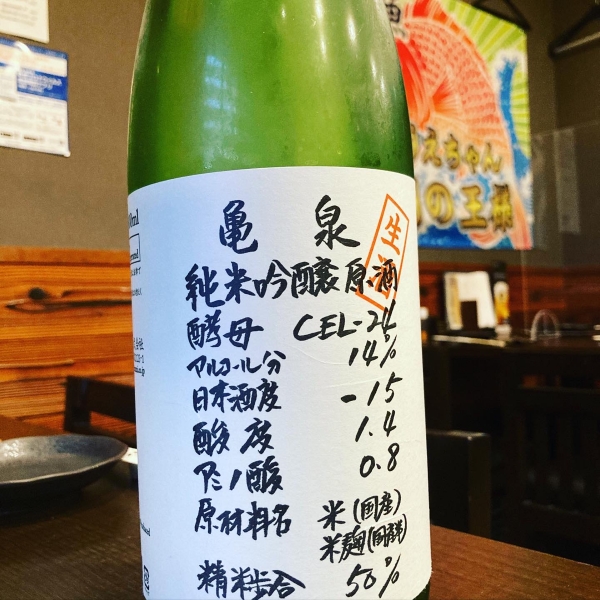 亀泉
生酒
純米吟醸原酒
酵母 CEL-24
アルコール分 14%
日本酒度 -15
酸度 1.4
アミノ酸 0.8
原材料名 米(国産)
米麹(国産米)
精米歩合 50%
えちゃん
の王様